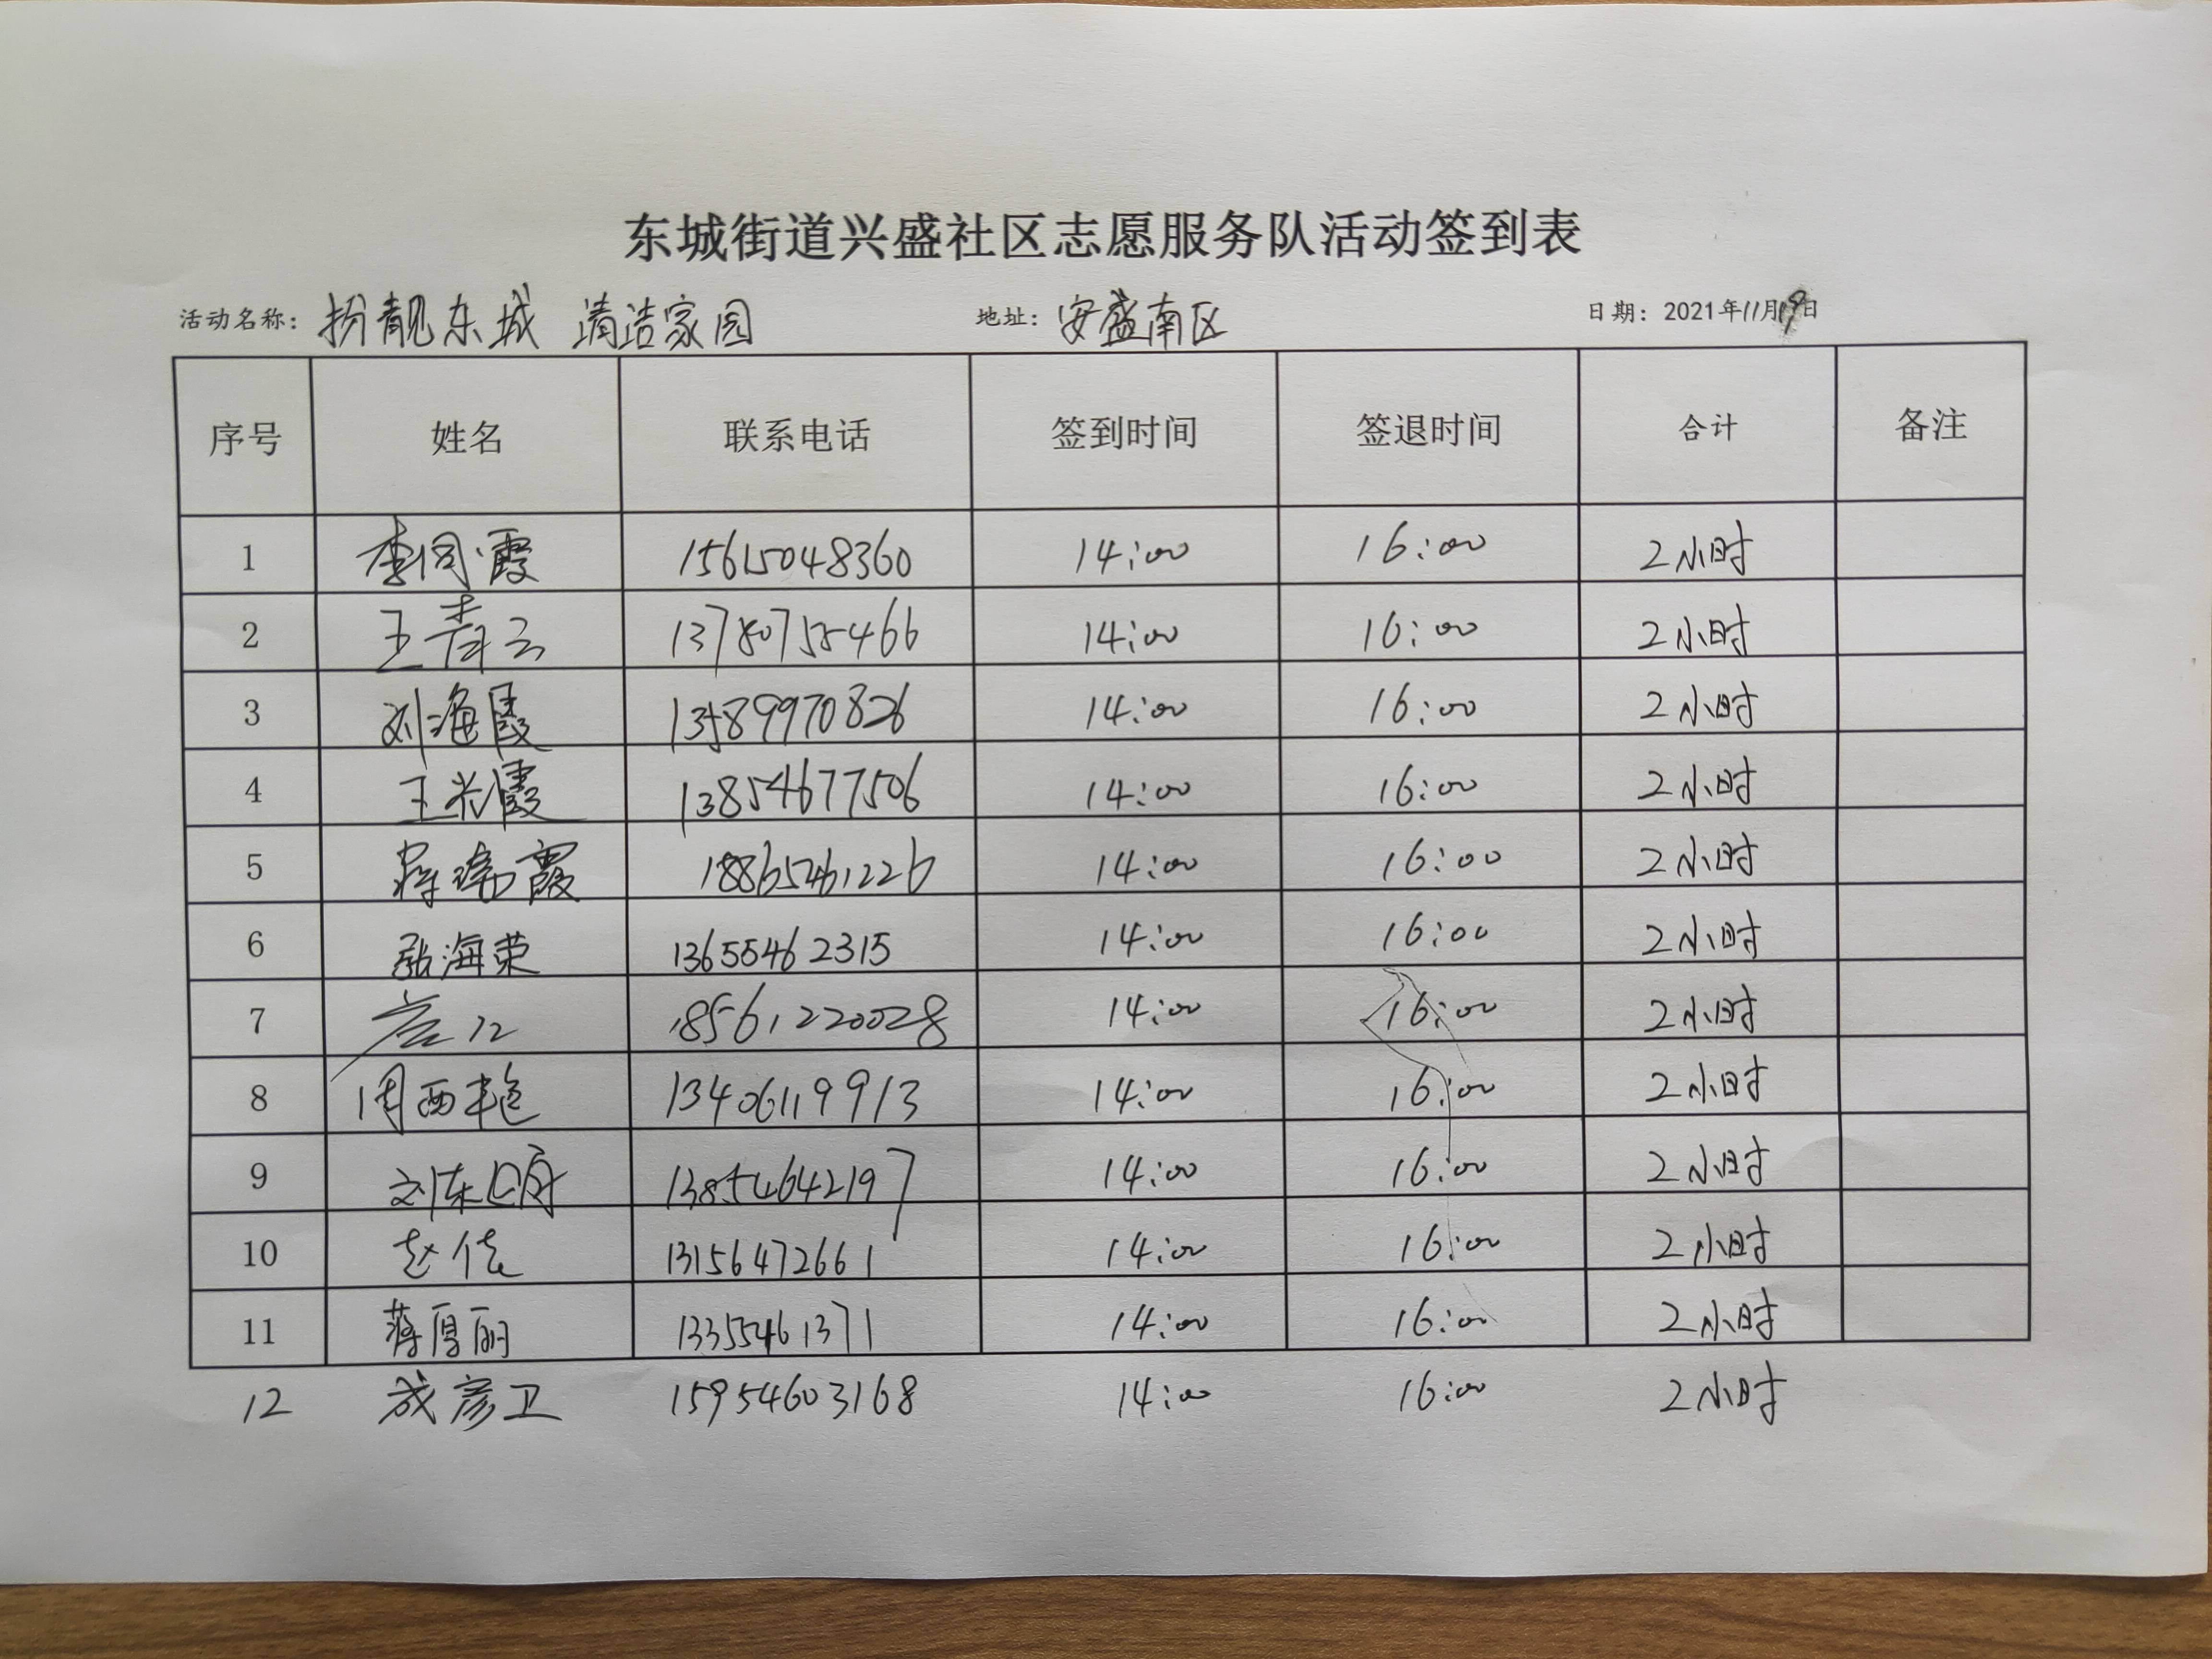 东城街道兴盛社区志愿服务队活动签到表
活动名称: 扮靓东城 清洁家园 地址: 安盛南区 日期: 2021年11月19日
序号 姓名 联系电话 签到时间 签退时间 合计 备注
1 李同霞 15615048360 14:00 16:00 2小时
2 王青云 13780755466 14:00 16:00 2小时
3 刘海霞 13589970826 14:00 16:00 2小时
4 王兴霞 13854677506 14:00 16:00 2小时
5 蒋瑞霞 18865461226 14:00 16:00 2小时
6 张海荣 13655462315 14:00 16:00 2小时
7 18561220028 14:00 16:00 2小时
8 周西艳 13406119913 14:00 16:00 2小时
9 刘东 13854642197 14:00 16:00 2小时
10 赵倩 13156472661 14:00 16:00 2小时
11 蒋厚丽 13355461371 14:00 16:00 2小时
12 成彦卫 15954603168 14:00 16:00 2小时